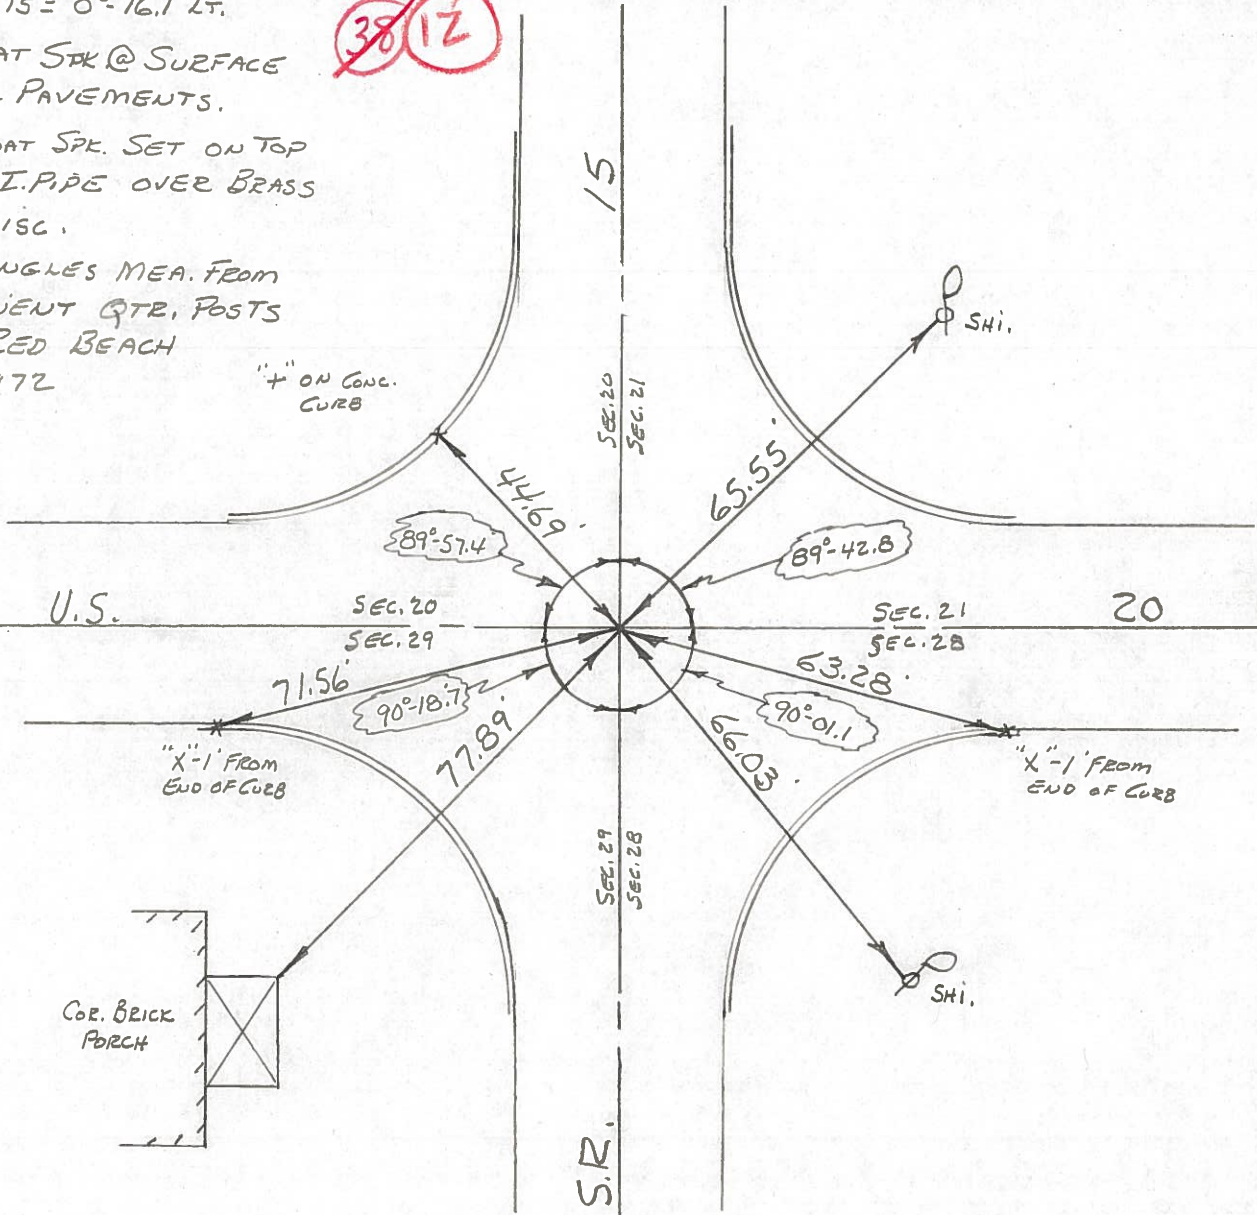 15 = 0°-16.1 LT.
38 12
AT SPK @ SURFACE
PAVEMENTS.
OAT SPK. SET ON TOP
I.PIPE OVER BRASS
ISC.
NGLES MEA. FROM
IENT QTR. POSTS
CED BEACH
172
"+" ON CONC.
CURB
15
SHI.
SEC. 20
SEC. 21
44.69'
65.55'
89°-57.4
89°-42.8
U.S.
SEC. 20
SEC. 29
SEC. 21
SEC. 28
20
71.56'
63.28'
90°-18.7
90°-01.1
77.89'
66.03'
"X"-1' FROM
END OF CURB
"X"-1' FROM
END OF CURB
SEC. 29
SEC. 28
COR. BRICK
PORCH
SHI.
S.R.